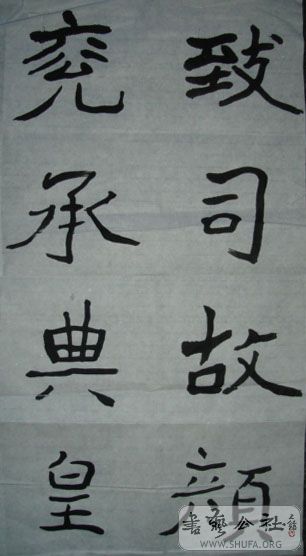 致司故顏
兖承典皇
書藝公社
WWW.SHUFA.ORG